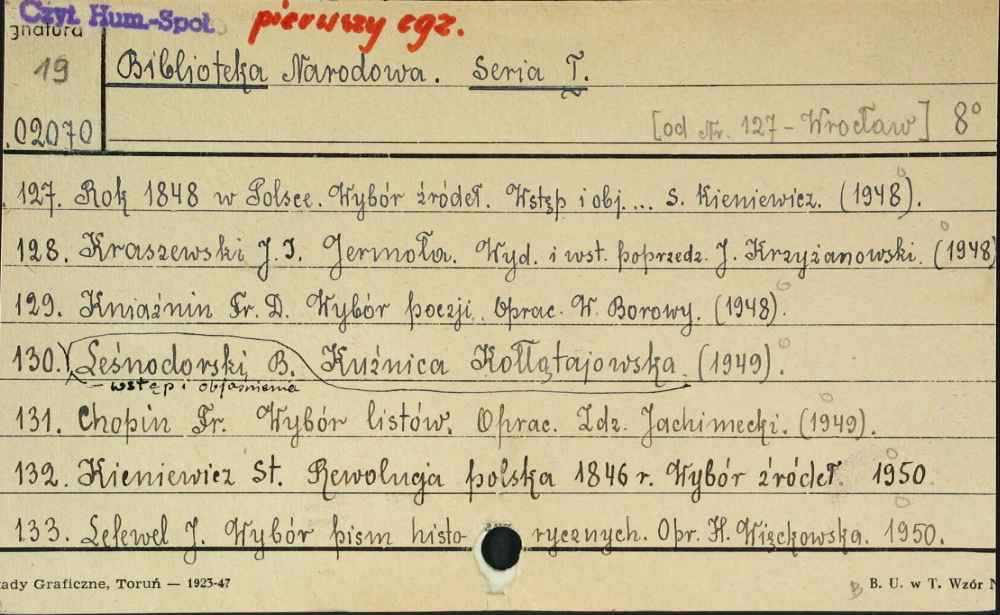 Czyt. Hum.-Społ. pierwszy egz.
gnatura
19
Biblioteka Narodowa. Seria I.
02070
[od Nr. 127 - Wrocław] 8°
127. Rok 1848 w Polsce. Wybór źródeł. Wstęp i obj.... S. Kieniewicz. (1948).
128. Kraszewski J. I. Jermoła. Wyd. i wst. poprzedz. J. Krzyżanowski. (1948)
129. Kniaźnin Fr. D. Wybór poezji. Oprac. W. Borowy. (1948).
130. Leśnodorski B. Kuźnica Kołłątajowska. (1949).
- wstęp i objaśnienia
131. Chopin Fr. Wybór listów. Oprac. Zdz. Jachimecki. (1949).
132. Kieniewicz St. Rewolucja polska 1846 r. Wybór źródeł. 1950
133. Lelewel J. Wybór pism histo- rycznych. Opr. H. Więckowska. 1950.
ady Graficzne, Toruń — 1923-47
B B. U. w T. Wzór N